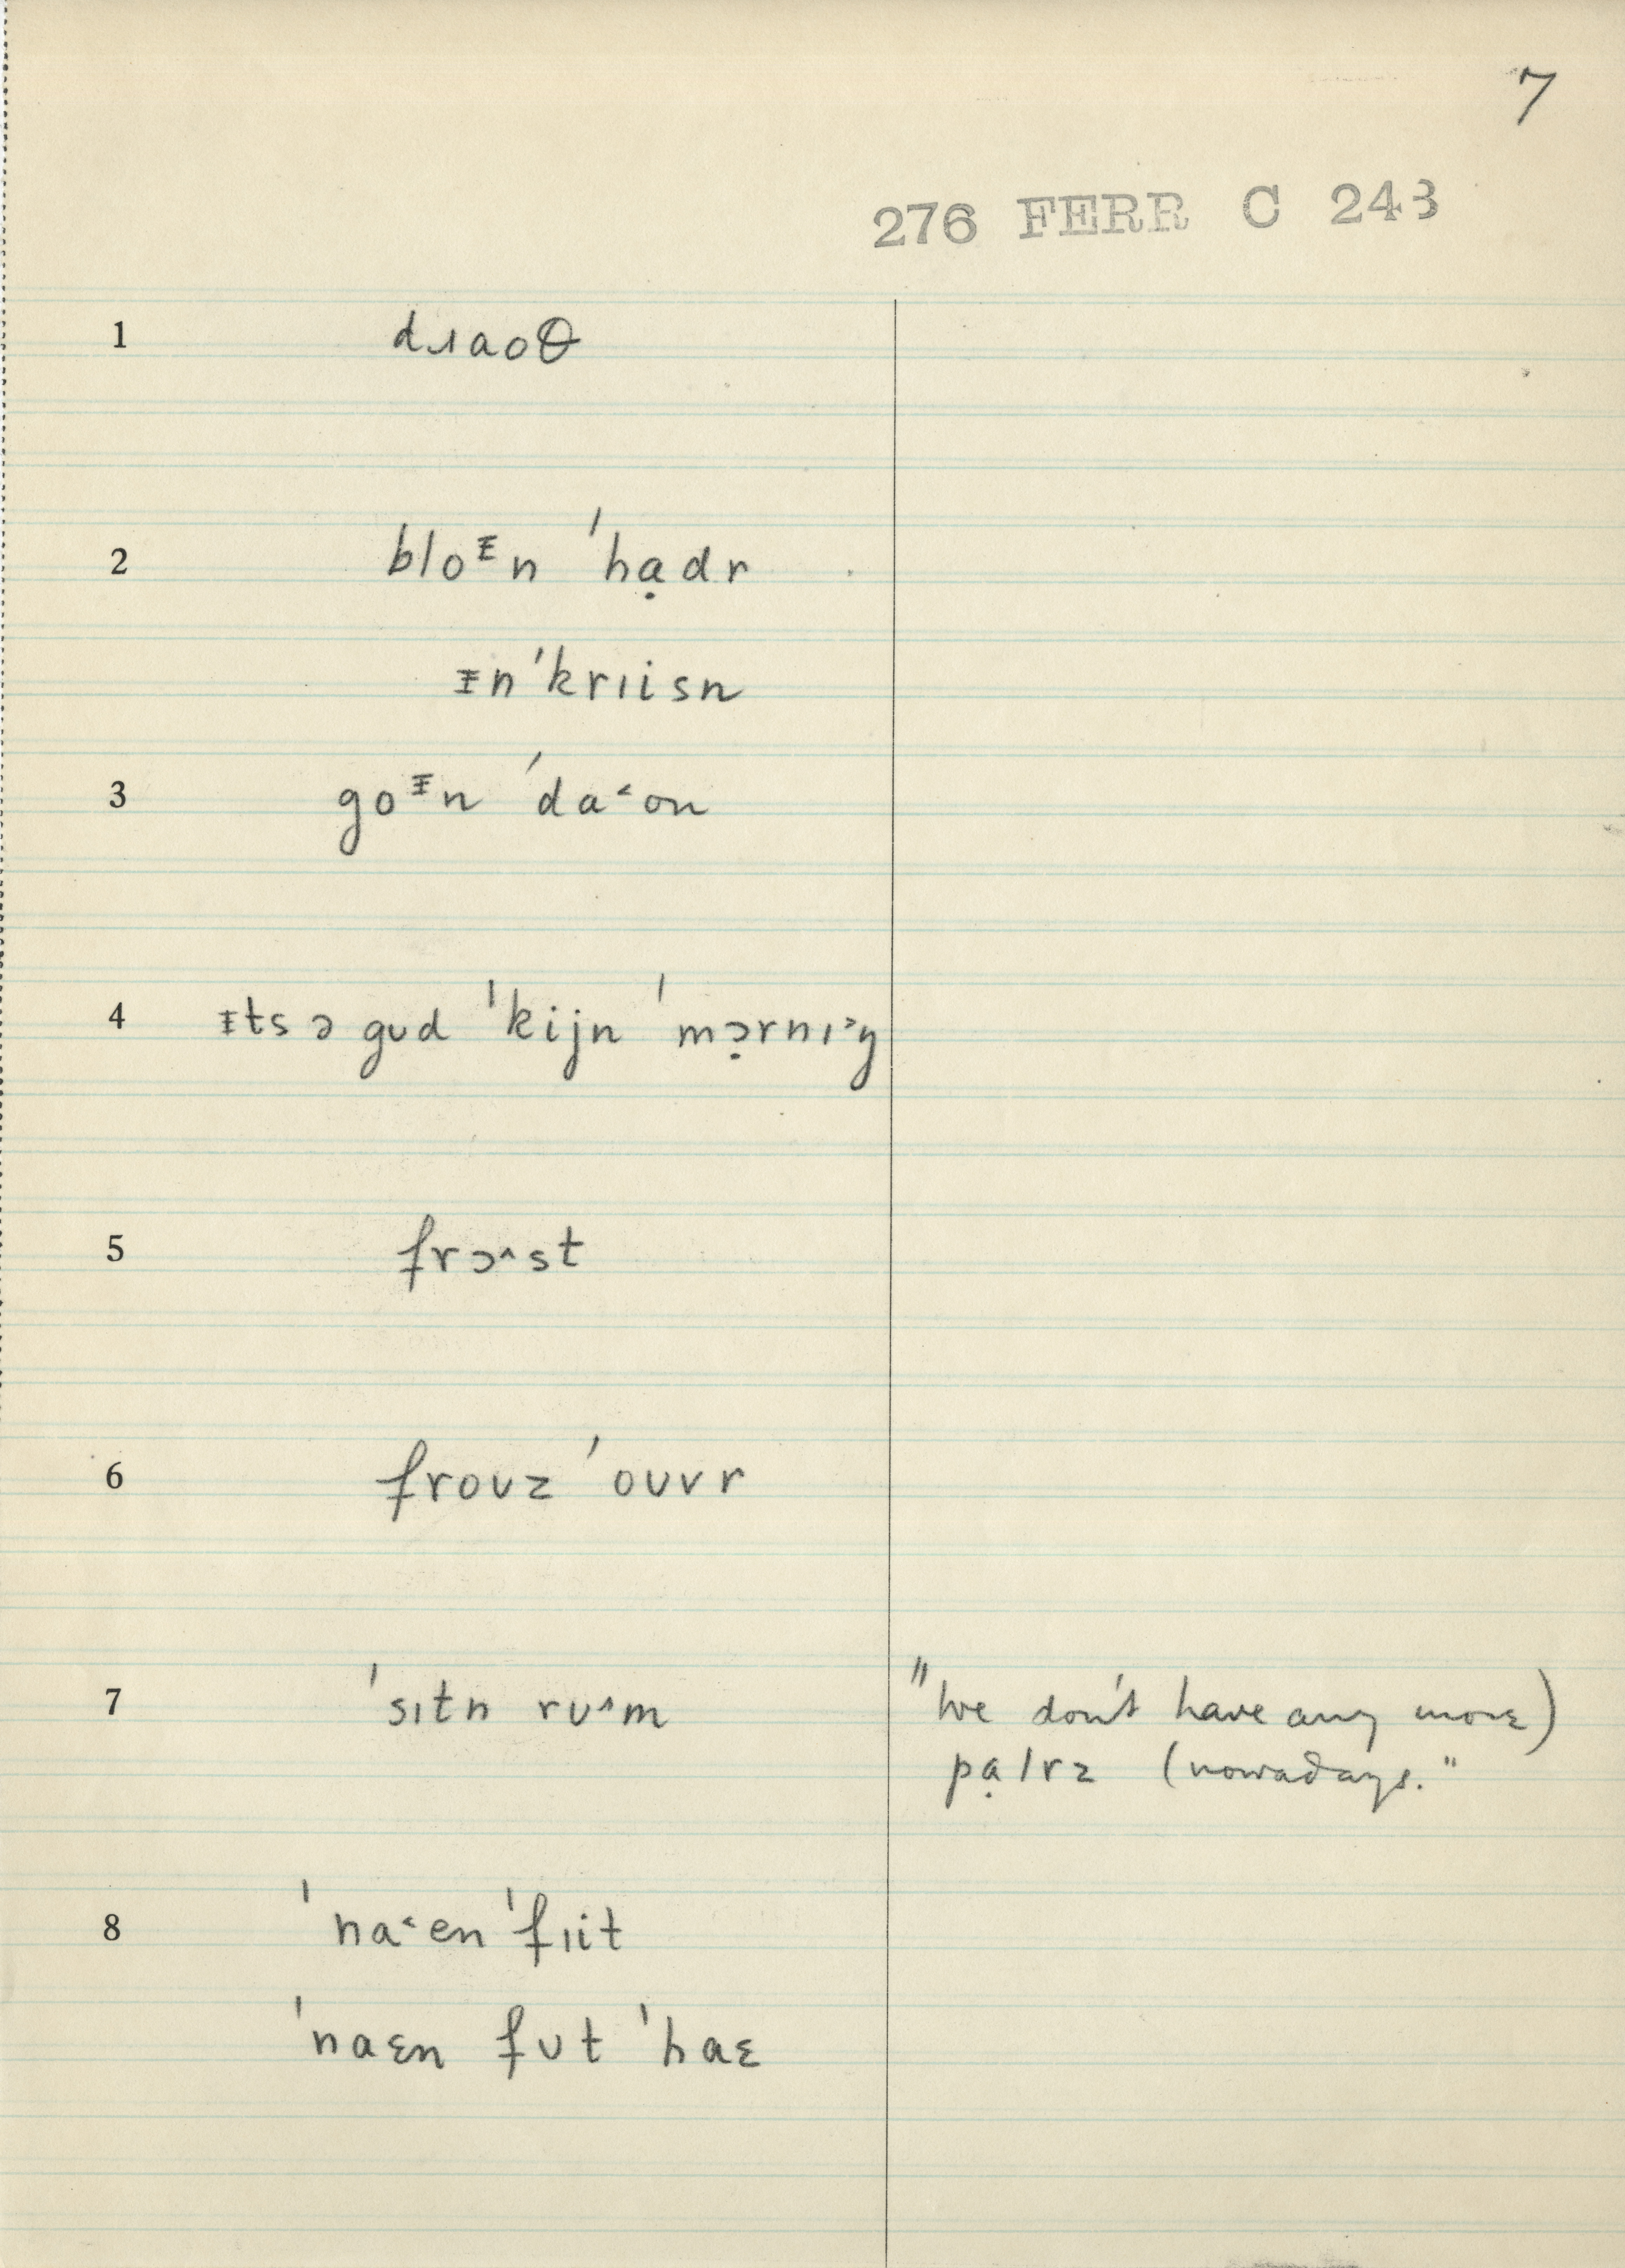 7
276 FERR C 243
1 dɹaoθ
2 bloᵻn 'hạdr
ᵻn'krɪisn
3 goᵻn 'da˂on
4 ᵻts ə gʊd 'kijn 'mɔ̣rnɪ˃ŋ
5 frɔ˄st
6 froʊz 'oʊvr
7 'sɪtn rʊ˄m "We don't have any more)
pạlrz (nowadays."
8 'na˂en 'fɪit
'naɛn fʊt 'haɛ